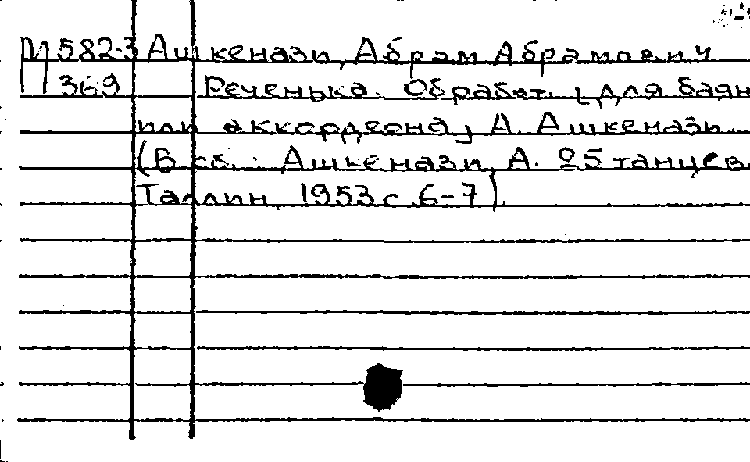 П582-3 Ашкенази, Абрам Абрамович
369 Реченька. Обработ. [для баяна
или аккордеона] А. Ашкенази.
(В кн.: Ашкенази, А. 25 танцев
Таллин, 1953 с. 6-7)